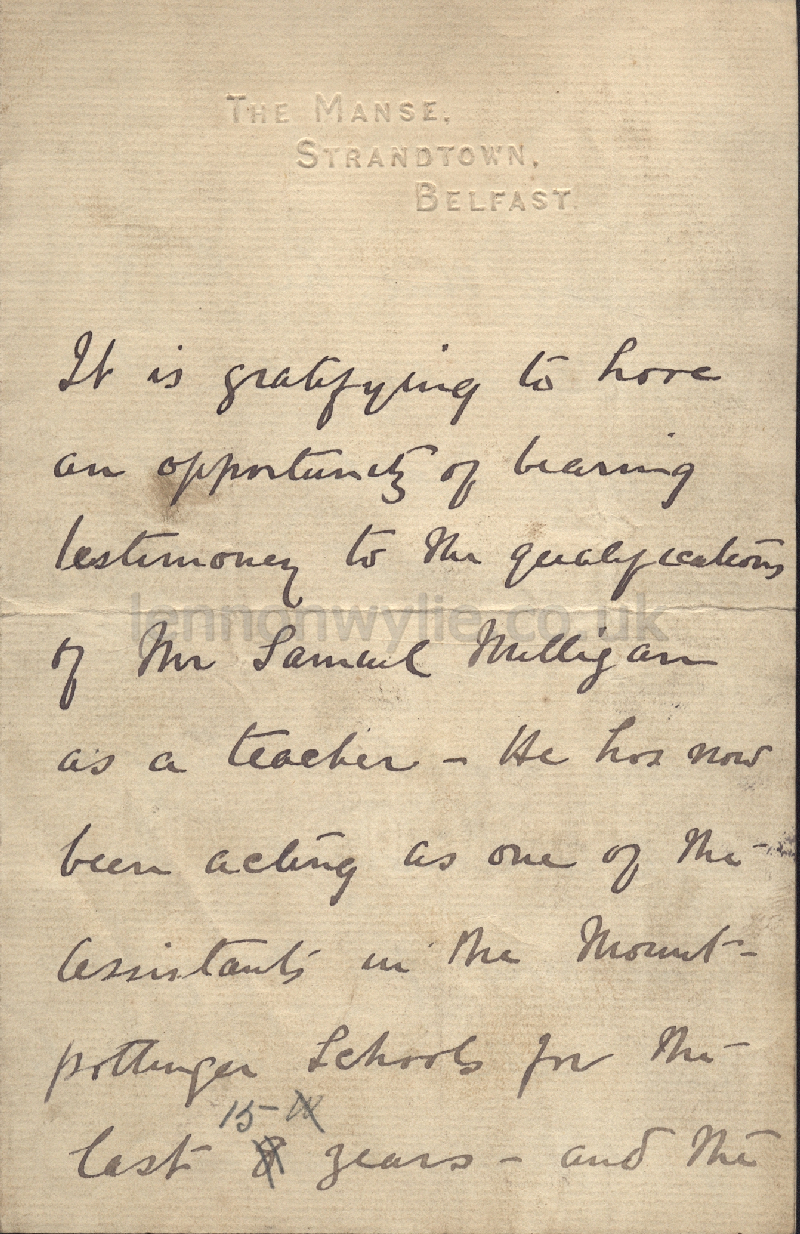 THE MANSE,
STRANDTOWN,
BELFAST.
It is gratifying to have
an opportunity of bearing
testimoney to the qualifications
lennonwylie.co.uk
of Mr Samuel Milligan
as a teacher - He has now
been acting as one of the
assistants in the Mount-
pottinger Schools for the
15
last 8 years - and the